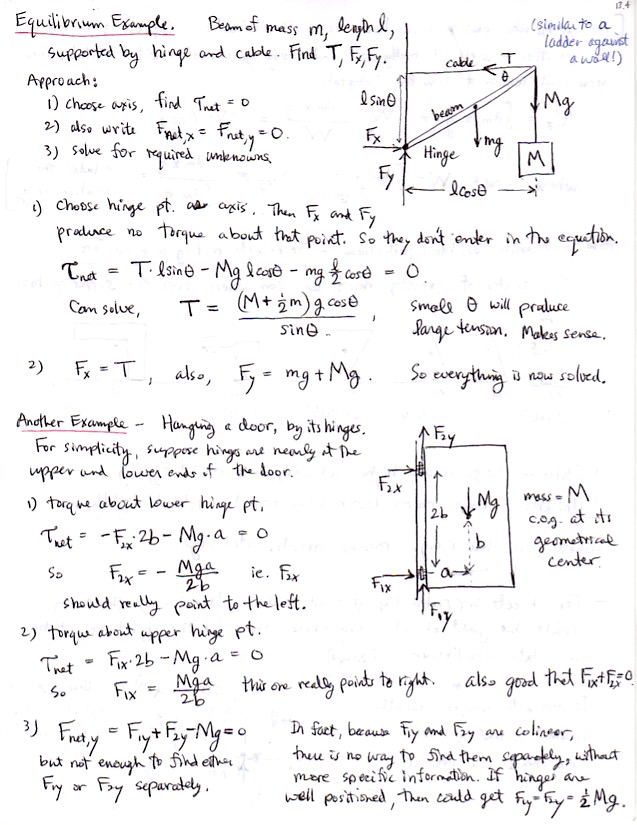 13.4
Equilibrium Example. Beam of mass m, length l,
supported by hinge and cable. Find T, Fx, Fy.
(similar to a
ladder against
a wall!)
Approach:
1) choose axis, find τnet = 0
2) also write Fnet,x = Fnet,y = 0.
3) solve for required unknowns.
cable T
θ
l sinθ
beam
Mg
Fx
mg
Hinge
M
Fy
l cosθ
1) Choose hinge pt. as axis. Then Fx and Fy
produce no torque about that point. So they don't enter in the equation.
τnet = T·l sinθ − Mg l cosθ − mg l/2 cosθ = 0
Can solve, T = (M + ½m) g cosθ / sinθ , small θ will produce
large tension. Makes sense.
2) Fx = T , also, Fy = mg + Mg. So everything is now solved.
Another Example – Hanging a door, by its hinges.
For simplicity, suppose hinges are nearly at the
upper and lower ends of the door.
1) torque about lower hinge pt.
τnet = −F2x·2b − Mg·a = 0
So F2x = − Mga / 2b ie. F2x
should really point to the left.
F2y
F2x
Mg
2b
b
a
F1x
F1y
mass = M
c.o.g. at its
geometrical
center.
2) torque about upper hinge pt.
τnet = F1x·2b − Mg·a = 0
So F1x = Mga / 2b this one really points to right. also good that F1x+F2x=0.
3) Fnet,y = F1y + F2y − Mg = 0
but not enough to find either
F1y or F2y separately.
In fact, because F1y and F2y are colinear,
there is no way to find them separately, without
more specific information. If hinges are
well positioned, then could get F1y = F2y = ½ Mg.